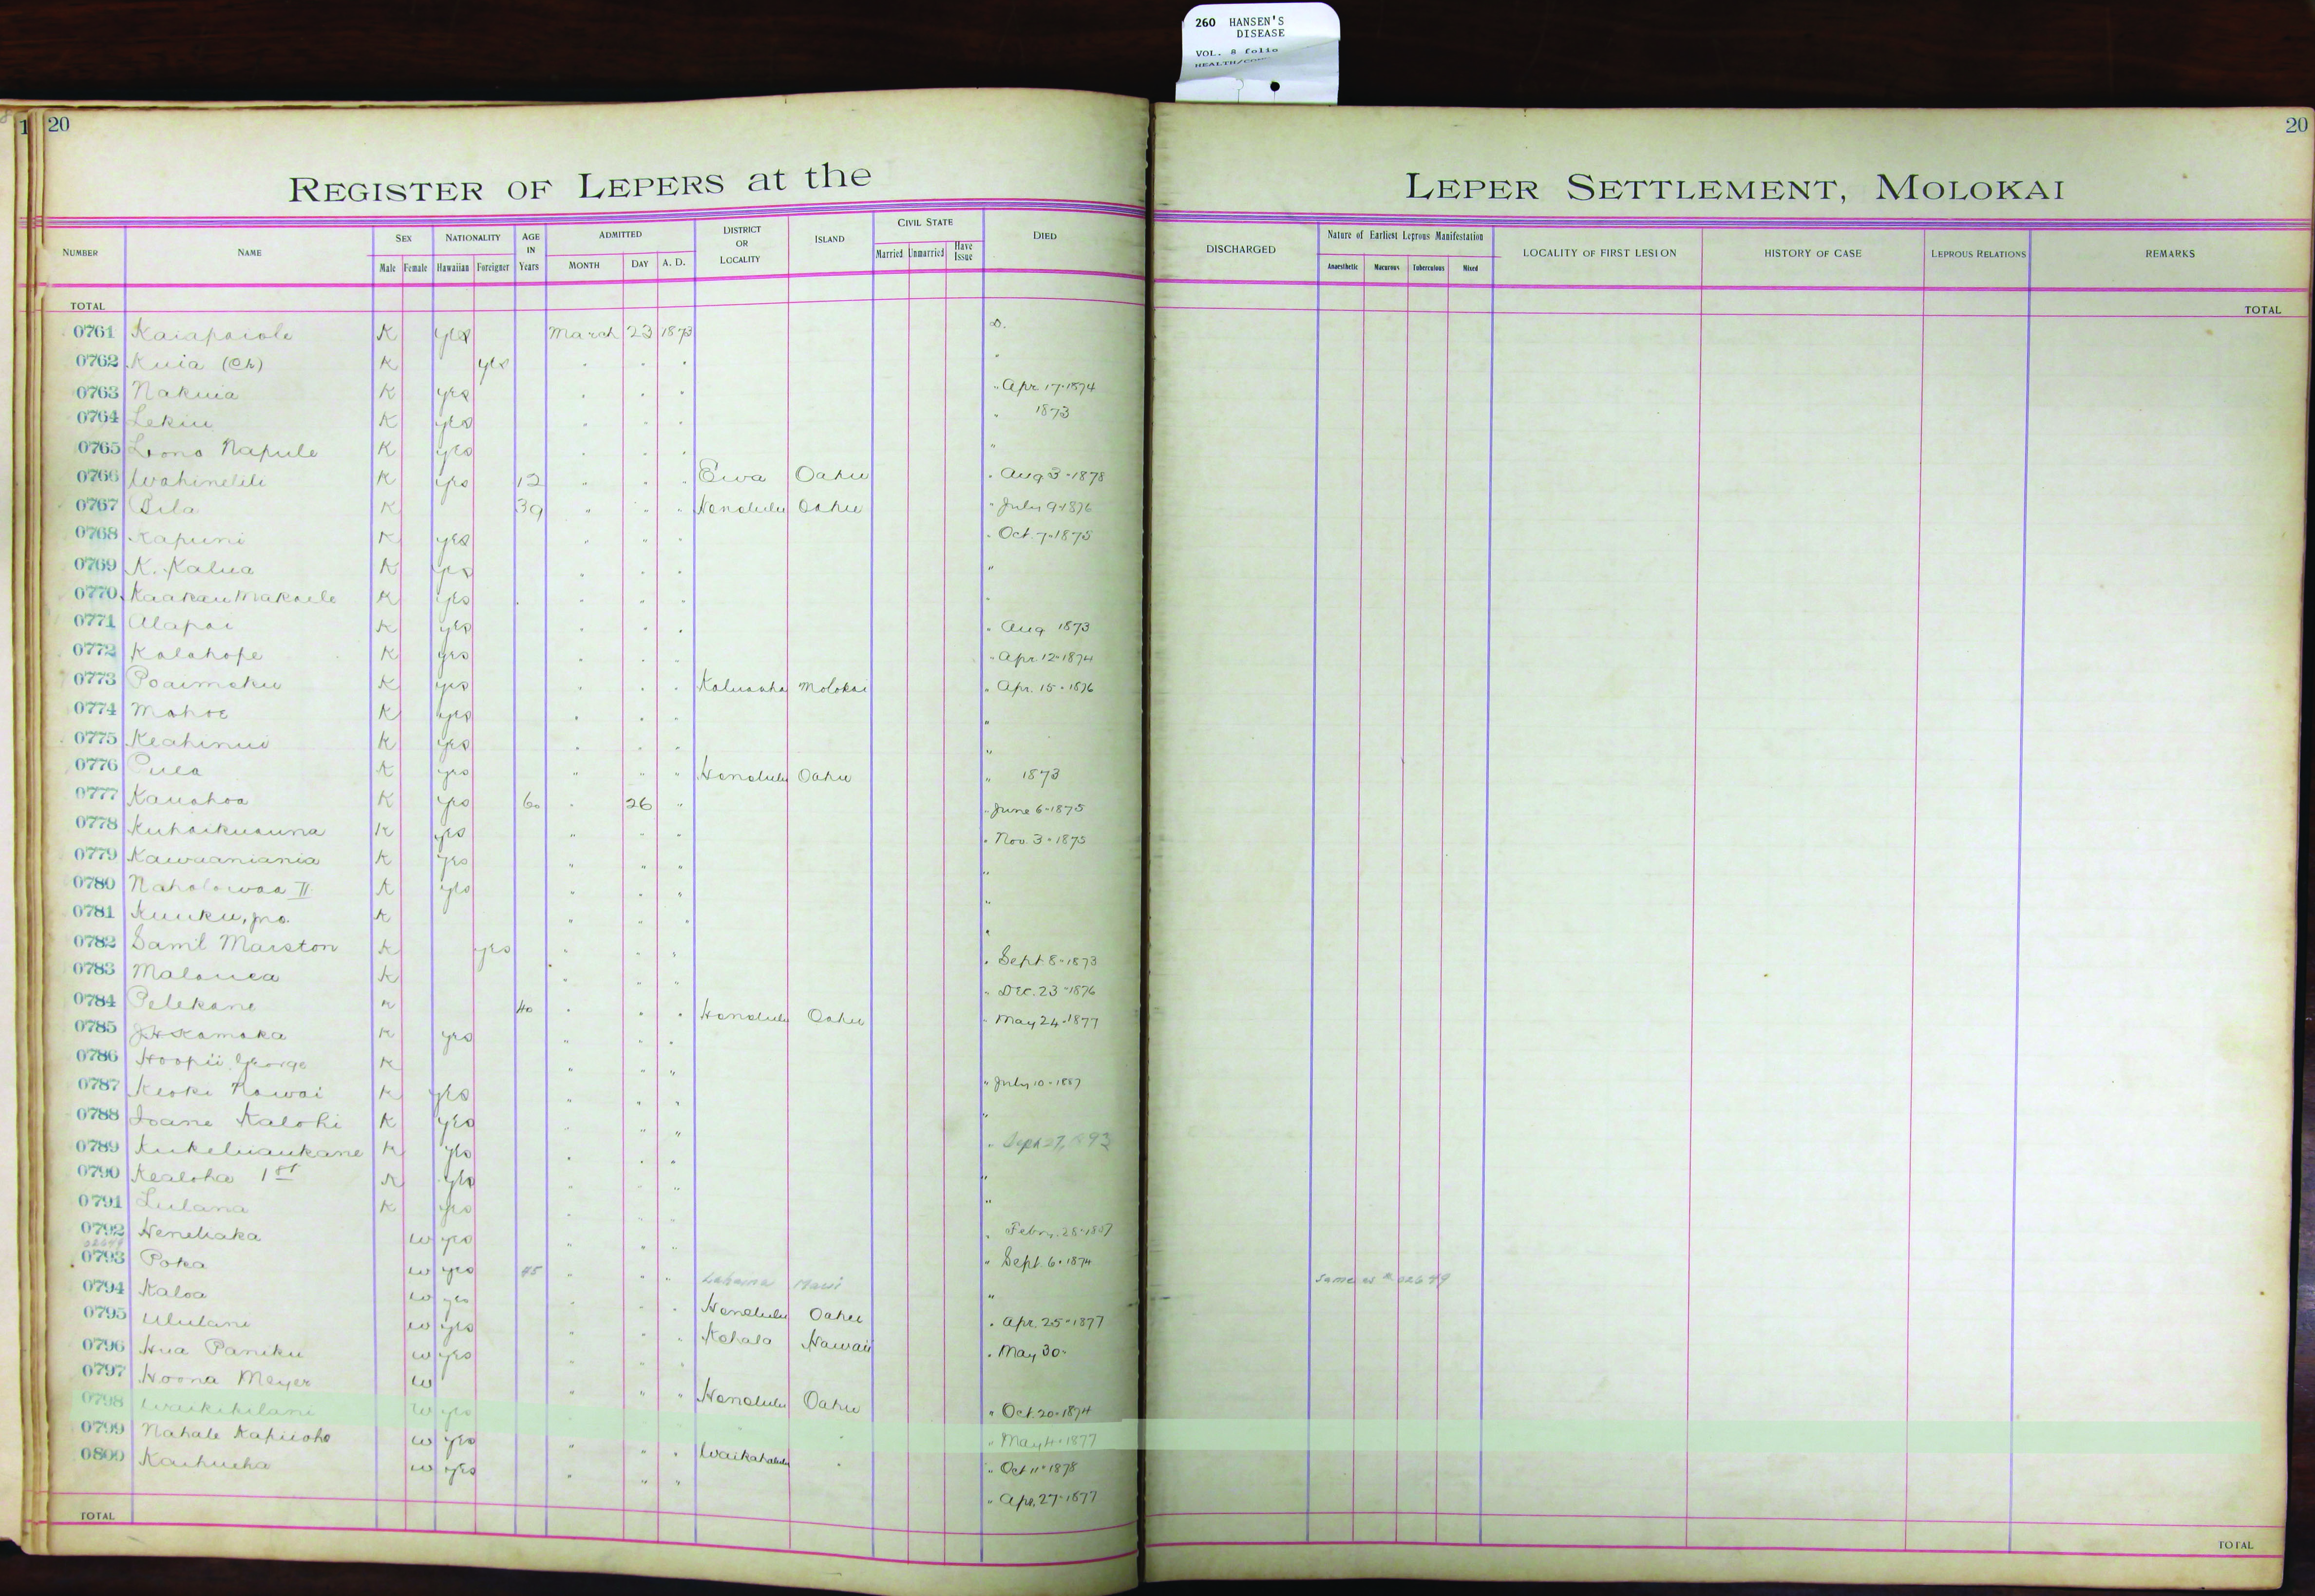 260 HANSEN'S
DISEASE
VOL. 8 folio
20
20
REGISTER OF LEPERS at the LEPER SETTLEMENT, MOLOKAI
NUMBER NAME SEX NATIONALITY AGE IN Years ADMITTED DISTRICT OR LOCALITY ISLAND CIVIL STATE DIED DISCHARGED Nature of Earliest Leprous Manifestation LOCALITY OF FIRST LESION HISTORY OF CASE LEPROUS RELATIONS REMARKS
Male Female Hawaiian Foreigner MONTH DAY A. D. Married Unmarried Have Issue Anaesthetic Macurous Tuberculous Mixed
TOTAL TOTAL
0761 Kaiapaiole K yes March 23 1873 D.
0762 Kuia (Ch) K yes
0763 Nakuia K yes " Apr 17-1874
0764 Lekiu K yes " 1873
0765 Lono Napule K yes "
0766 Wahinelili K yes 12 " " " Ewa Oahu " Aug 3-1878
0767 Pila K 39 " " " Honolulu Oahu " July 9-1876
0768 Kapuni K yes " Oct. 7-1875
0769 K. Kalua K yes "
0770 Kaakau Makaele K yes "
0771 Alapai K yes " Aug 1873
0772 Kalahope K yes " Apr. 12-1874
0773 Poaimoku K yes Kaluaaha Molokai " Apr. 15-1876
0774 Mahoe K yes "
0775 Keahinui K yes "
0776 Pula K yes " " " Honolulu Oahu " 1873
0777 Kauahoa K yes 60 " 26 " " June 6-1875
0778 Kuhaikuauna K yes " Nov. 3-1875
0779 Kawaaniania K yes "
0780 Naholowaa II K yes "
0781 Kuuku, Jno. K "
0782 Saml Marston K yes " Sept 8-1873
0783 Malouea K " Dec. 23-1876
0784 Pelekane K 40 Honolulu Oahu " May 24-1877
0785 J. H. Kamaka K yes
0786 Hoopii George K " July 10-1887
0787 Keoki Nawai K yes "
0788 Ioane Kalohi K yes " Sept 27, 1893
0789 Kukeluaukane K yes "
0790 Kealoha 1st K yes "
0791 Lulana K yes " Feby. 28-1887
0792 Heneliaka W yes " Sept. 6-1874
02649
0793 Poka W yes 45 " " " Lahaina Maui " Same as # 02649
0794 Kaloa W yes Honolulu Oahu " Apr. 25-1877
0795 Ululani W yes Kohala Hawaii " May 30-
0796 Hua Paniku W yes
0797 Hoona Meyer W " " " Honolulu Oahu " Oct. 20-1874
0798 Waikikilani W yes " May 4-1877
0799 Nahale Kapiioho W yes " " " Waikahalulu " " Oct 11-1878
0800 Kaihueha W yes " " " " Apr. 27-1877
TOTAL TOTAL